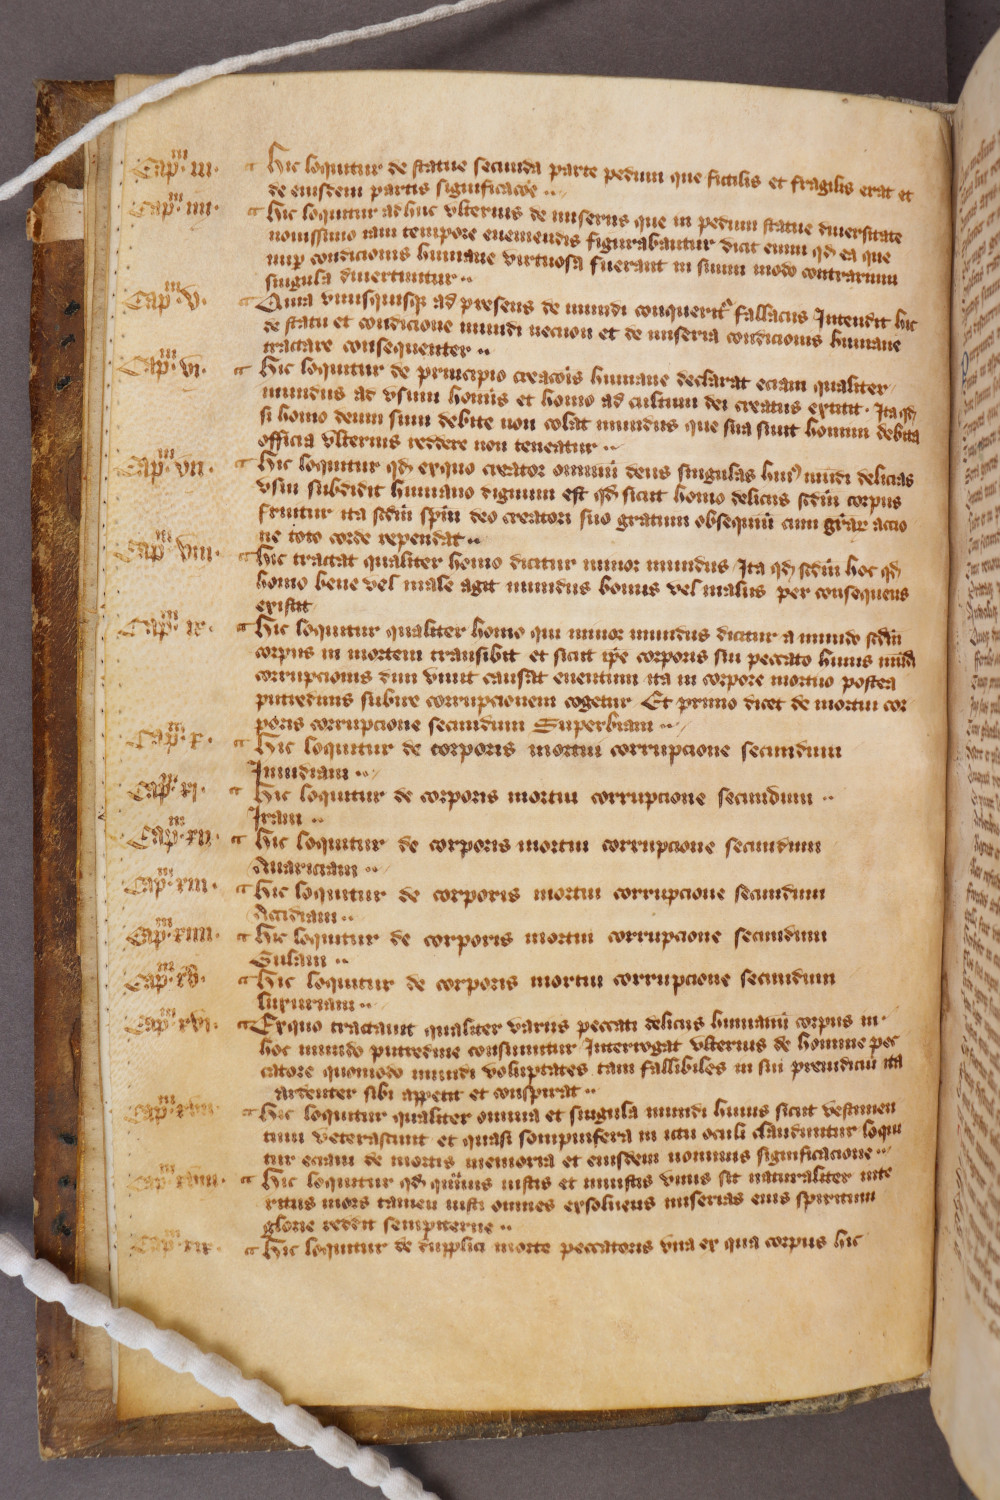 Capm. iii. Hic loquitur de statue secunda parte pedum que fictilis et fragilis erat et
de eiusdem partis significacõe
Capm. iiii. Hic loquitur adhuc vlterius de miseriis que in pedum statue diuersitate
nouissimo iam tempore eueniendis figurabantur dicit enim qd ea que
nup condicionis humane virtuosa fuerant in suum modo contrarium
singula diuertuntur
Capm. v. Quia vnusquisqȝ ad presens de mundi conquerit fallaciis Intendit hic
de statu et condicione mundi necnon et de miseria condicionis humane
tractare consequenter
Capm. vi. Hic loquitur de principio creacõis humane declarat eciam qualiter
mundus ad vsum hominis et homo ad cultum dei creatus extitit. Ita qd
si homo deum suum debite non colat mundus que sua sunt homini debita
officia vlterius reddere non teneatur
Capm. vii. Hic loquitur qd exquo creator omniũ deus singulas huius mũdi delicias
vsui subdidit humano dignum est qd sicut homo deliciis scdm corpus
fruitur ita scdm spm deo creatori suo gratum obsequiũ cum grar accio
ne toto corde rependat
Capm. viii. Hic tractat qualiter homo dicitur minor mundus Ita qd scdm hoc qd
homo bene vel male agit mundus bonus vel malus per consequens
existit
Capm. ix. Hic loquitur qualiter homo qui minor mundus dicitur a mundo scdm
corpus in mortem transibit et sicut ipe corporis sui peccato huius mũdi
corrupcionis dum viuit causat euentum ita in corpore mortuo postea
putredinis subire corrupcionem cogetur Et primo dicet de mortui cor
poris corrupcione secundum Superbiam
Capm. x. Hic loquitur de corporis mortui corrupcione secundum
Inuidiam
Capm. xi. Hic loquitur de corporis mortui corrupcione secundum
Iram
Capm. xii. Hic loquitur de corporis mortui corrupcione secundum
Auariciam
Capm. xiii. Hic loquitur de corporis mortui corrupcione secundum
Accidiam
Capm. xiiii. Hic loquitur de corporis mortui corrupcione secundum
Gulam
Capm. xv. Hic loquitur de corporis mortui corrupcione secundum
luxuriam
Capm. xvi. Exquo tractauit qualiter variis peccati deliciis humanũ corpus in
hoc mundo putredine consumitur Interrogat vlterius de homine pec
catore quomodo mundi voluptates tam fallibiles in sui preiudiciũ ita
ardenter sibi appetit et conspirat
Capm. xvii. Hic loquitur qualiter omnia et singula mundi huius sicut vestimen
tum veterascunt et quasi sompnifera in ictu oculi clauduntur loqui
tur eciam de mortis memoria et eiusdem nominis significacione
Capm. xviii. Hic loquitur qd quãuis iustis et iniustis vnus sit naturaliter inte
ritus mors tamen iusti omnes exsoluens miserias eius spiritum
glorie reddit sempiterne
Capm. xix. Hic loquitur de dupplici morte peccatoris vna ex qua corpus hic